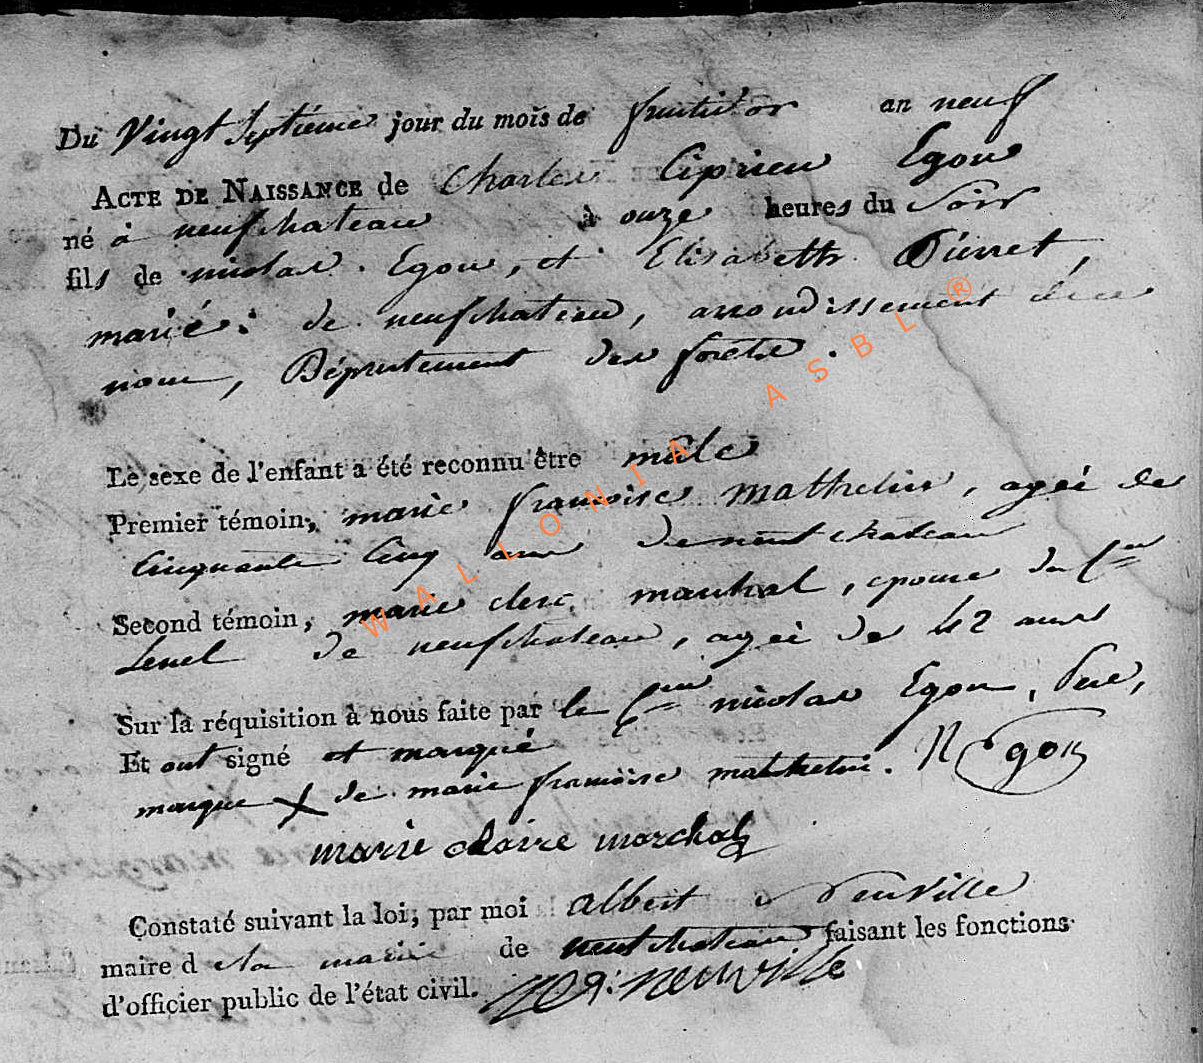 Du Vingt Septième jour du mois de fructidor an neuf
ACTE DE NAISSANCE de Charles Ciprien Egon
né à neufchateau à onze heures du Soir
fils de nicolas Egon, et Elisabeth Pierret,
marié: de neufchateau, arrondissement
Département des forêts.
Le sexe de l'enfant a été reconnu être mâle
Premier témoin, marie françoise mathelin, agée de
Cinquante Cinq ans de neufchateau
Second témoin, marie marchal, epouse du Cen
de neufchateau, agée de 42 anns
Sur la réquisition à nous faite par le Cen nicolas Egon, Pere,
Et ont signé et marqué
marque X de marie françoise mathelin. N Egon
marie claire marchal
Constaté suivant la loi, par moi albert Neuville
maire d de neufchateau faisant les fonctions
d'officier public de l'état civil. Neuville
WALLONIA ASBL ®